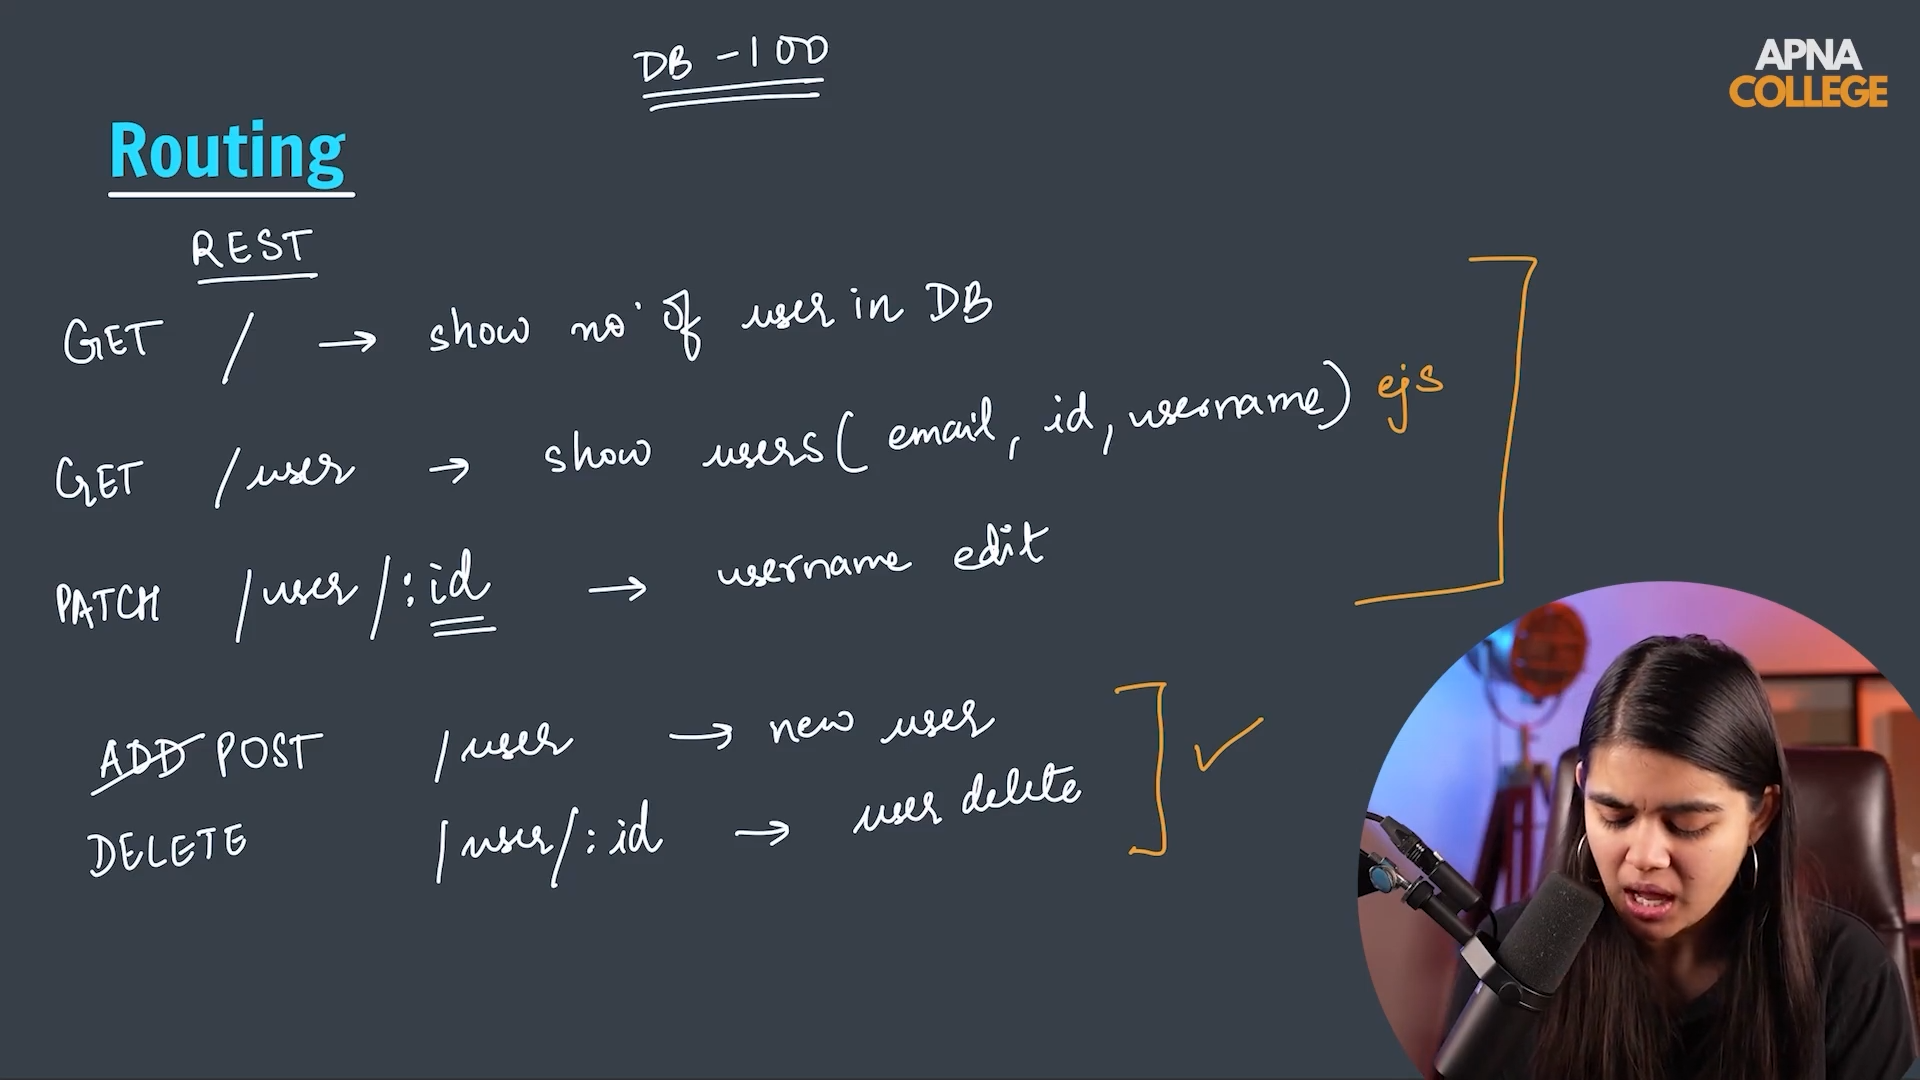 DB - 100
APNA
COLLEGE
Routing
REST
GET / → show no. of user in DB
GET /user → show users ( email, id, username) ejs
PATCH /user/:id → username edit
ADD POST /user → new user
DELETE /user/:id → user delete